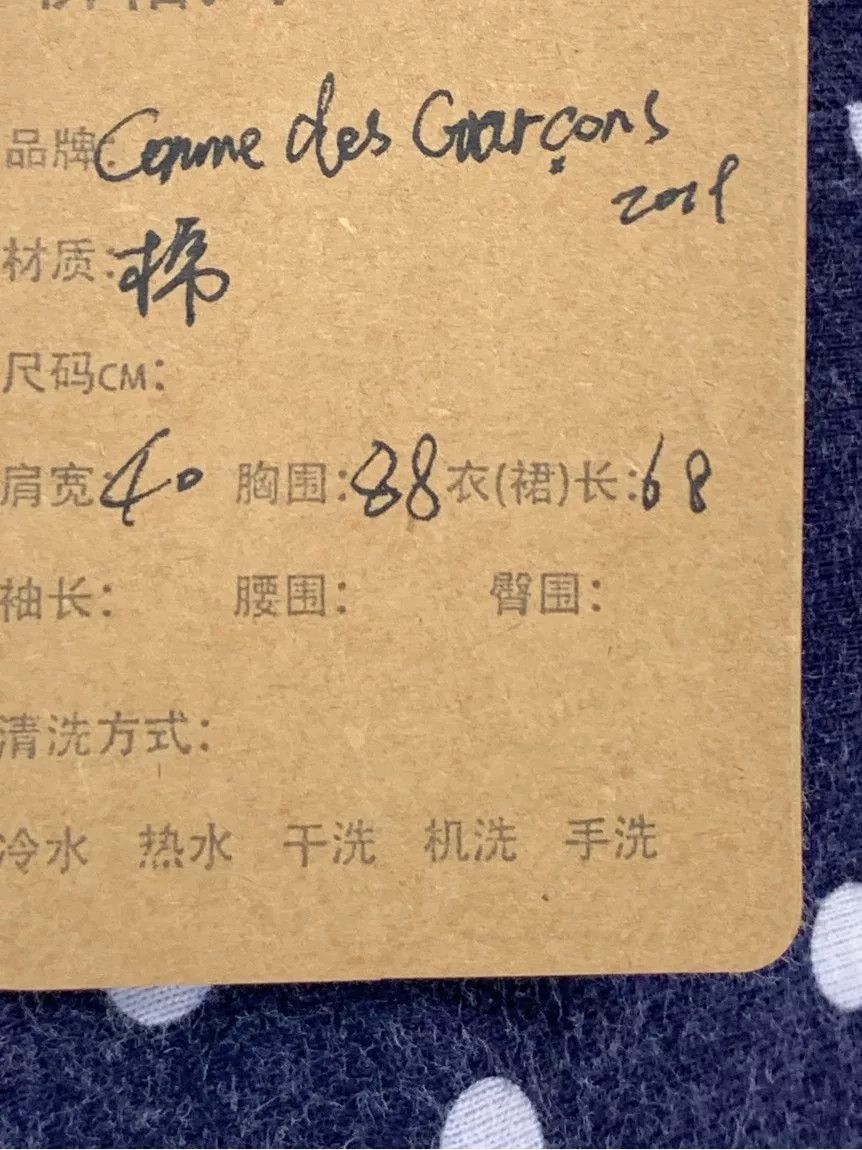 品牌:Comme des Garçons
材质:棉
尺码CM:
肩宽:40 胸围:88 衣(裙)长:68
袖长: 腰围: 臀围:
清洗方式:
冷水 热水 干洗 机洗 手洗